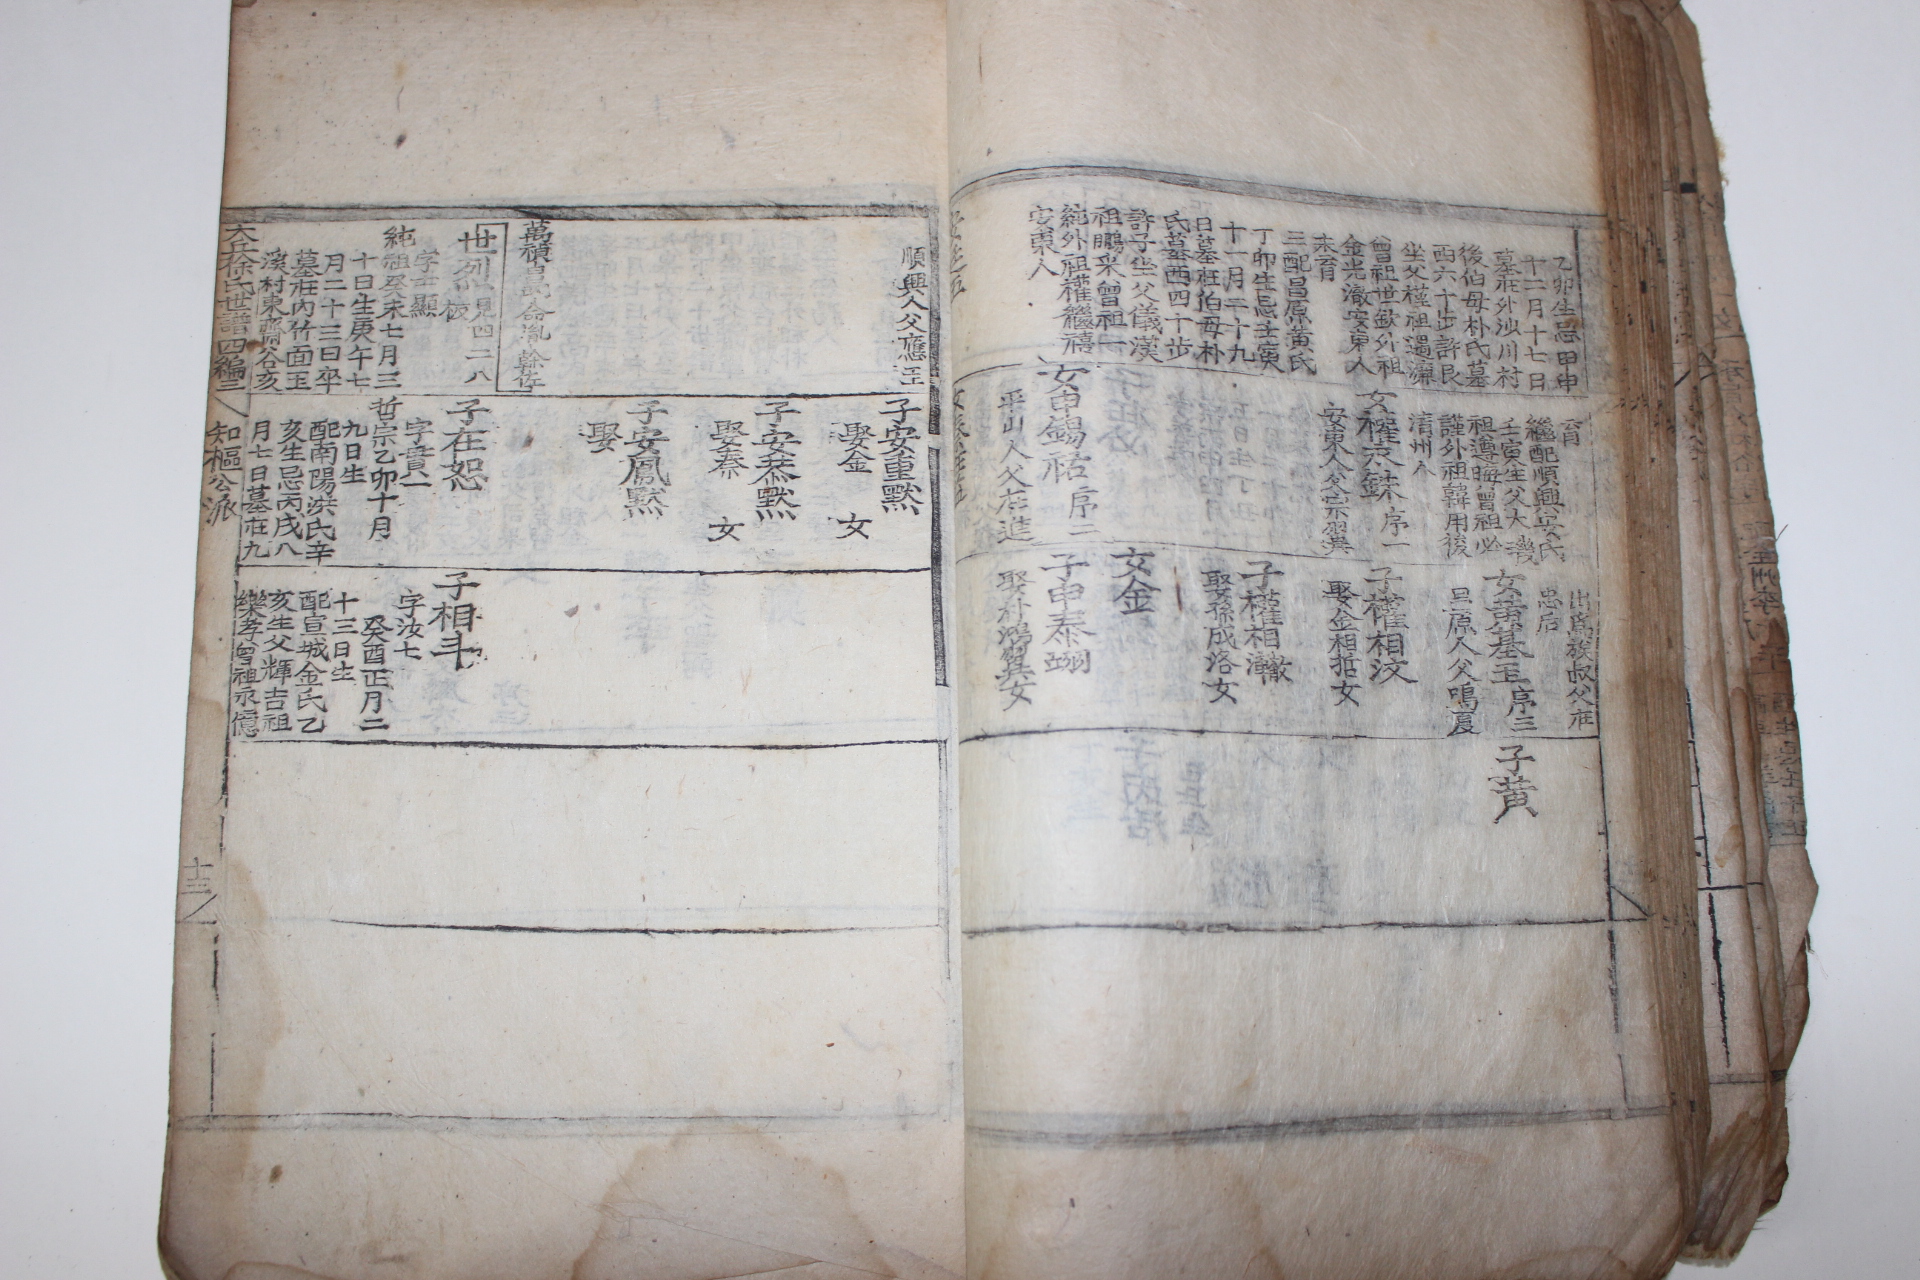 乙卯生忌甲申
十二月十七日
墓在外汕川村
後伯母朴氏墓
酉六十步許艮
坐父槿祖暹濂
曾祖世歆外祖
金光澈安東人
未育
三配昌原黃氏
丁卯生忌壬寅
十一月二十九
日墓在伯母朴
氏墓酉四十步
許子坐父儀漢
祖鵬來曾祖一
純外祖權繼禧
安東人
育
繼配順興安氏
壬寅生父大璣
祖遵晦曾祖必
謹外祖韓用後
清州人
女權永銖序一
安東人父宗翼
女申錫祐序二
平山人父在進
出爲族叔父在
忠后
女黃基玉序三
昌原人父鳴夏
子權相汶
娶金相哲女
子權相瀚
娶孫成洛女
女金
子申泰翊
娶朴鴻翼女
子黃
順興人父應
萬禎昌民命胤榦佐
世烈 見四二八板
字士顯
純祖癸未七月三
十日生庚午七
月二十三日卒
墓在內竹面玉
溪村東齋谷亥
大丘徐氏世譜四編二
子安重默
娶金 女
子安恭默
娶秦 女
子安鳳默
娶
子在恕
字賁一
哲宗乙卯十月
九日生
配南陽洪氏辛
亥生忌丙戌八
月七日墓在九
知樞公派
子相斗
字汝七
癸酉正月二
十三日生
配宣城金氏乙
亥生父輝吉祖
樂孝曾祖永億
十三